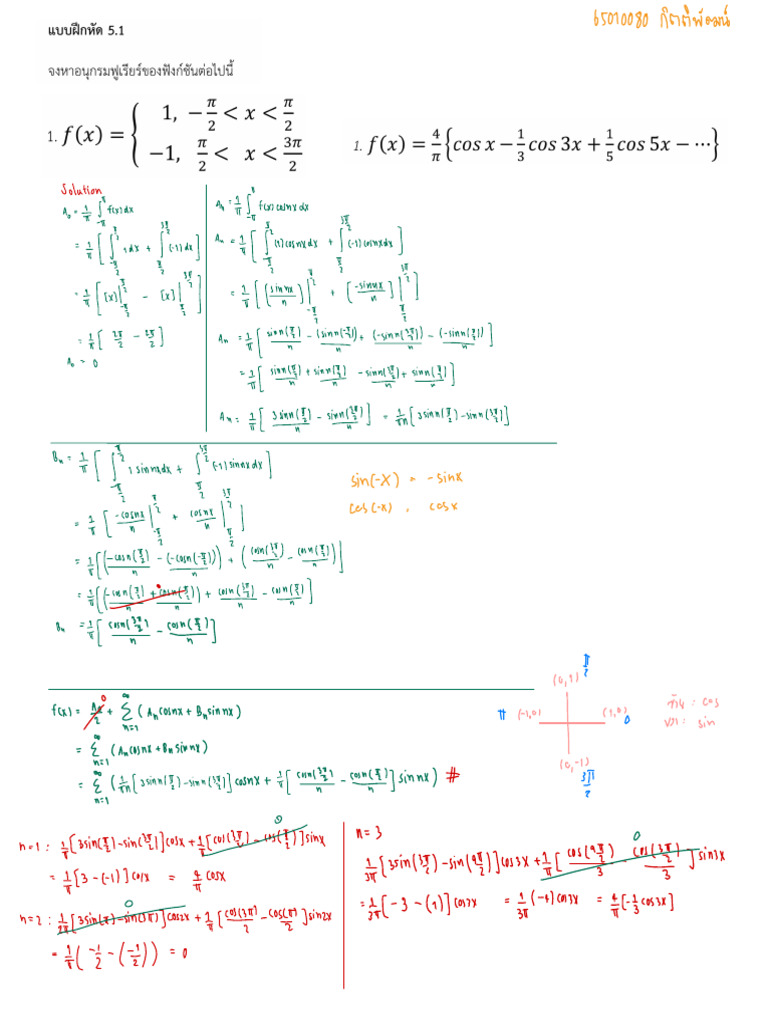 65010080 กิตติพัฒน์
แบบฝึกหัด 5.1
จงหาอนุกรมฟูเรียร์ของฟังก์ชันต่อไปนี้
1. f(x) = { 1, -π/2 < x < π/2
-1, π/2 < x < 3π/2
1. f(x) = 4/π {cos x − 1/3 cos 3x + 1/5 cos 5x − ⋯}
Solution
A₀ = 1/π ∫_{-π}^{π} f(x)dx
= 1/π [ ∫_{-π/2}^{π/2} 1dx + ∫_{π/2}^{3π/2} (-1)dx ]
= 1/π [ [x]|_{-π/2}^{π/2} - [x]|_{π/2}^{3π/2} ]
= 1/π [ 2π/2 - 2π/2 ]
A₀ = 0
Aₙ = 1/π ∫_{-π}^{π} f(x) cosnx dx
Aₙ = 1/π [ ∫_{-π/2}^{π/2} (1)cosnxdx + ∫_{π/2}^{3π/2} (-1)cosnxdx ]
= 1/π [ (sinnx/n)|_{-π/2}^{π/2} + (-sinnx/n)|_{π/2}^{3π/2} ]
Aₙ = 1/π [ sinn(π/2)/n - (sinn(-π/2))/n + (-sinn(3π/2))/n - (-sinn(π/2))/n ]
= 1/π [ sinn(π/2)/n + sinn(π/2)/n - sinn(3π/2)/n + sinn(π/2)/n ]
Aₙ = 1/π [ 3sinn(π/2)/n - sinn(3π/2)/n ] = 1/πn [3sinn(π/2) - sinn(3π/2)]
Bₙ = 1/π [ ∫_{-π/2}^{π/2} 1 sinnxdx + ∫_{π/2}^{3π/2} (-1)sinnxdx ]
= 1/π [ -cosnx/n |_{-π/2}^{π/2} + cosnx/n |_{π/2}^{3π/2} ]
= 1/π [ (-cosn(π/2)/n - (-cosn(-π/2))/n) + (cosn(3π/2)/n - cosn(π/2)/n) ]
= 1/π [ (-cosn(π/2)/n + cosn(π/2)/n) + cosn(3π/2)/n - cosn(π/2)/n ]
Bₙ = 1/π [ cosn(3π/2)/n - cosn(π/2)/n ]
sin(-x) = -sinx
cos(-x) = cosx
f(x) = A₀/2 0 + Σ_{n=1}^{∞} (Aₙcosnx + Bₙsinnx)
= Σ_{n=1}^{∞} (Aₙcosnx + Bₙsinnx)
= Σ_{n=1}^{∞} (1/πn [3sinn(π/2) - sinn(3π/2)] cosnx + 1/π [cosn(3π/2)/n - cosn(π/2)/n] sinnx) #
π/2
(0,1)
π (-1,0) (1,0) 0
(0,-1)
3π/2
: cos
: sin
n=1 : 1/π [3sin(π/2) - sin(3π/2)]cosx + 1/π [cos(3π/2) - cos(π/2)]sinx 0
= 1/π [3 - (-1)]cosx = 4/π cosx
n=2 : 1/2π [3sin(π) - sin(3π)]cos2x 0 + 1/π [cos(3π)/2 - cos(π)/2]sin2x
= 1/π (-1/2 - (-1/2)) = 0
n = 3
1/3π [3sin(3π/2) - sin(9π/2)]cos3x + 1/π [cos(9π/2)/3 - cos(3π/2)/3]sin3x 0
= 1/3π [-3 - (1)]cos3x = 1/3π (-4)cos3x = 4/π [-1/3 cos3x]